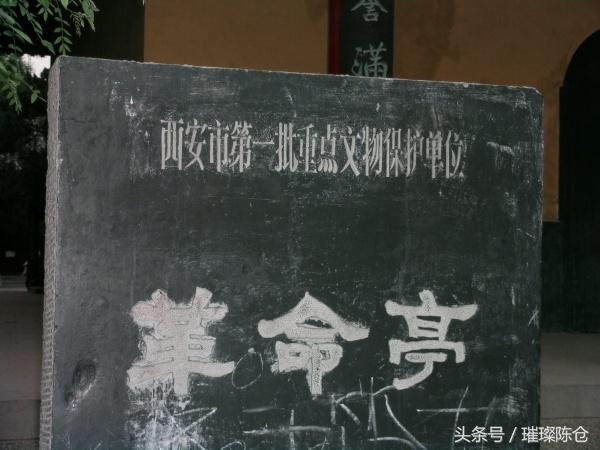 誉满
西安市第一批重点文物保护单位
革命亭
头条号/璀璨陈仓